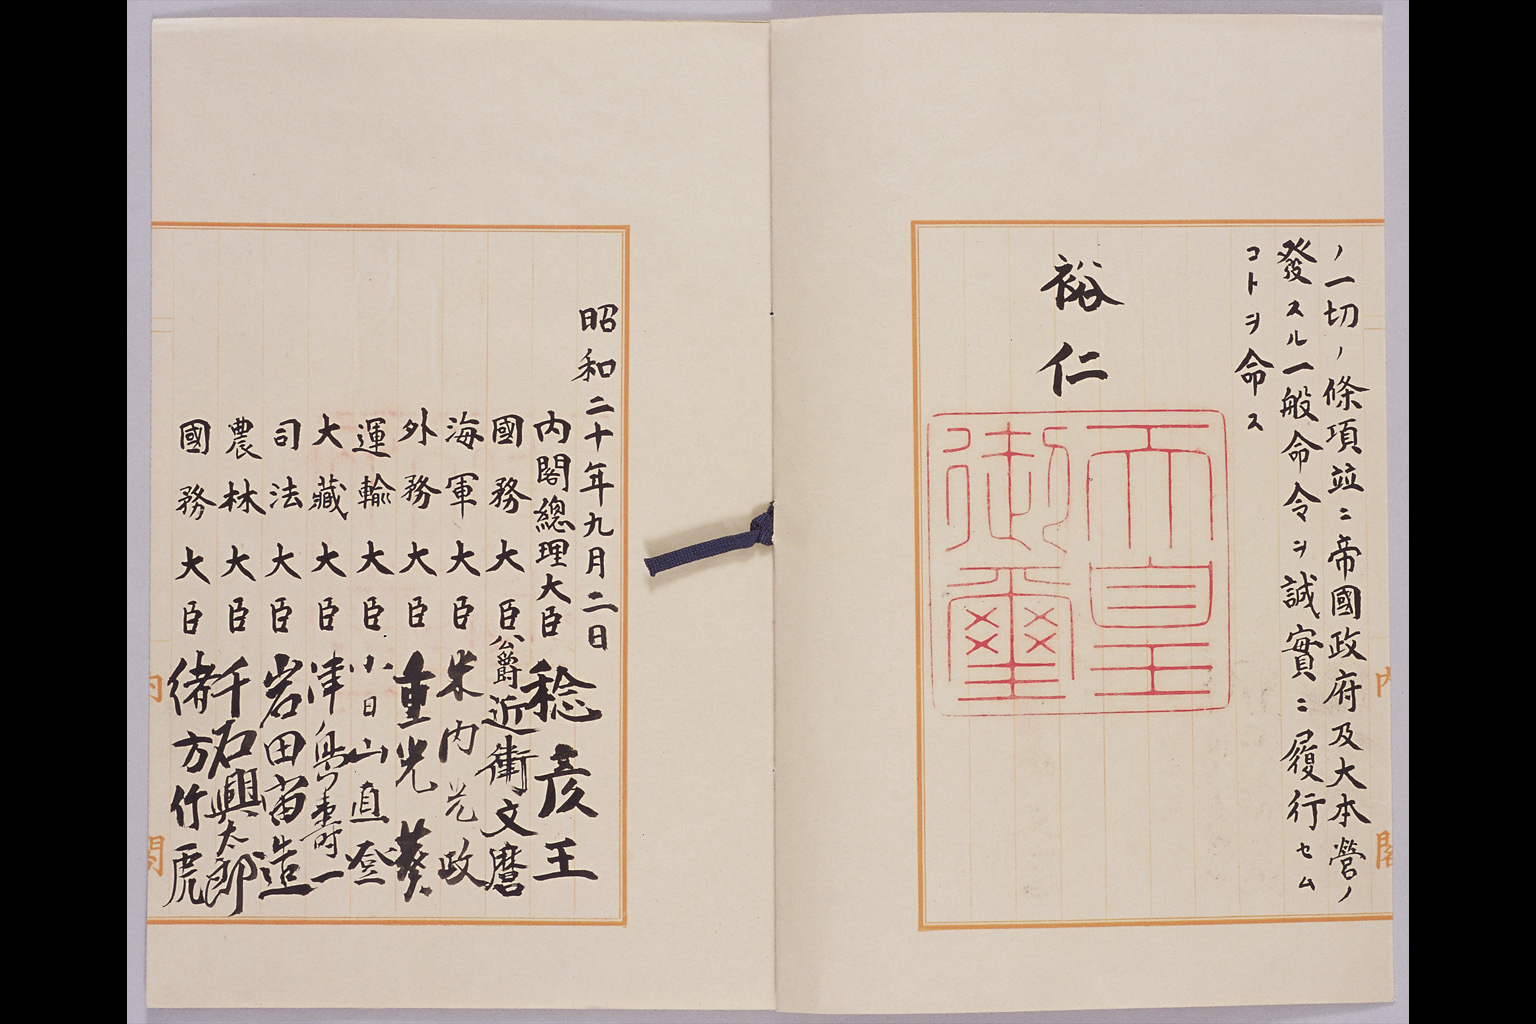 ノ一切ノ條項竝ニ帝國政府及大本營ノ
發スル一般命令ヲ誠實ニ履行セム
コトヲ命ス
裕仁
天皇
御璽
昭和二十年九月二日
内閣總理大臣 稔彦王
國務大臣 公爵 近衞文麿
海軍大臣 米内光政
外務大臣 重光葵
運輸大臣 小日山直登
大藏大臣 津島壽一
司法大臣 岩田宙造
農林大臣 千石興太郎
國務大臣 緒方竹虎
内閣
内閣